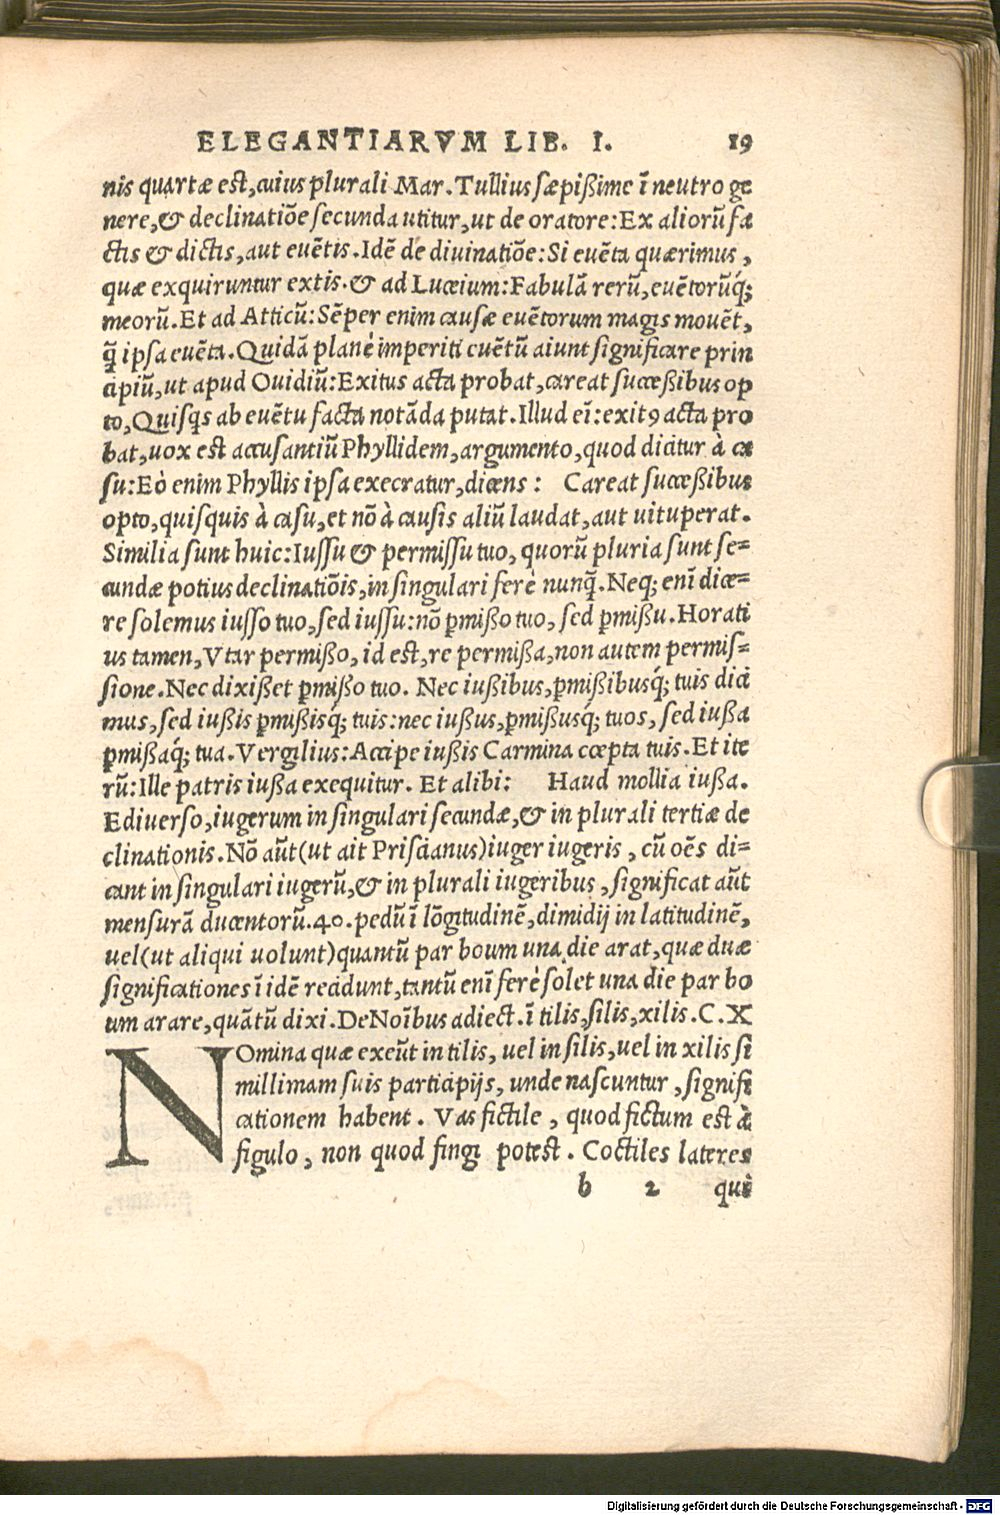 ELEGANTIARVM LIB. I. 19
nis quartæ est, cuius plurali Mar. Tullius sæpißime ĩ neutro ge
nere, & declinatiõe secunda utitur, ut de oratore: Ex aliorũ fa
ctis & dictis, aut euẽtis. Idẽ de diuinatiõe: Si euẽta quærimus,
quæ exquiruntur extis. & ad Lucceium: Fabulã rerũ, euẽtorũq́;
meorũ. Et ad Atticũ: Sẽper enim causæ euẽtorum magis mouẽt,
q̃ ipsa euẽta. Quidã planè imperiti euẽtũ aiunt significare prin
cipiũ, ut apud Ouidiũ: Exitus acta probat, careat succeßibus op
to, Quisq̃s ab euẽtu facta notãda putat. Illud eĩ: exitꝰ acta pro
bat, uox est accusantiũ Phyllidem, argumento, quod dicitur à ca
su: Eò enim Phyllis ipsa execratur, dicens: Careat succeßibus
opto, quisquis à casu, et nõ à causis aliũ laudat, aut uituperat.
Similia sunt huic: Iussu & permissu tuo, quorũ pluria sunt se=
cundæ potius declinatiõis, in singulari ferè nunq̃. Neq; enĩ dice=
re solemus iusso tuo, sed iussu: nõ ꝑmißo tuo, sed ꝑmißu. Horati
us tamen, Vtar permißo, id est, re permißa, non autem permis=
sione. Nec dixißet ꝑmißo tuo. Nec iußibus, ꝑmißibusq́; tuis dici
mus, sed iußis ꝑmißisq́; tuis: nec iußus, ꝑmißusq́; tuos, sed iußa
ꝑmißaq́; tua. Vergilius: Accipe iußis Carmina cœpta tuis. Et ite
rũ: Ille patris iußa exequitur. Et alibi: Haud mollia iußa.
E diuerso, iugerum in singulari secundæ, & in plurali tertiæ de
clinationis. Nõ aũt (ut ait Priscianus) iuger iugeris, cũ oẽs di=
cant in singulari iugerũ, & in plurali iugeribus, significat aũt
mensurã ducentorũ. 40. pedũ ĩ lõgitudinẽ, dimidij in latitudinẽ,
uel (ut aliqui uolunt) quantũ par boum una die arat, quæ duæ
significationes ĩ idẽ recidunt, tantũ enĩ ferè solet una die par bo
um arare, quãtũ dixi. De Noĩbus adiect. ĩ tilis, silis, xilis. C. X
NOmina quæ exeũt in tilis, uel in silis, uel in xilis si
millimam suis participijs, unde nascuntur, signifi
cationem habent. Vas fictile, quod fictum est à
figulo, non quod fingi potest. Coctiles lateres
b 2 qui
Digitalisierung gefördert durch die Deutsche Forschungsgemeinschaft - DFG